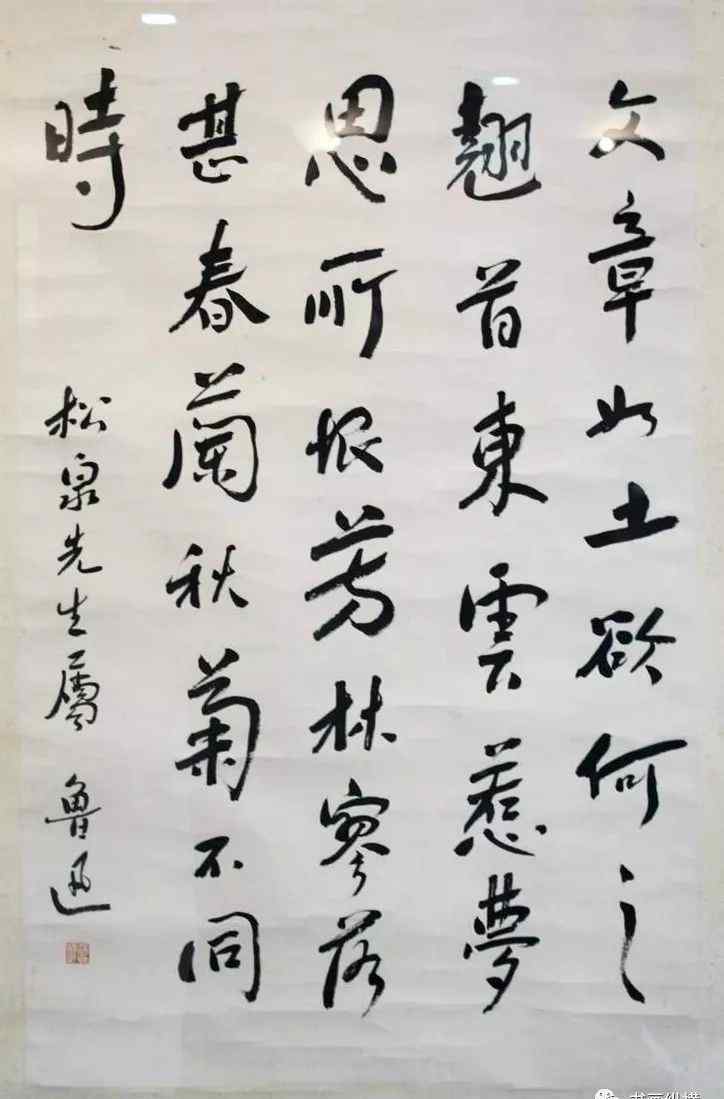 文章如土欲何之
翹首東雲惹夢
思所恨芳林寥落
甚春蘭秋菊不同
時
松泉先生屬 魯迅
书画纵横